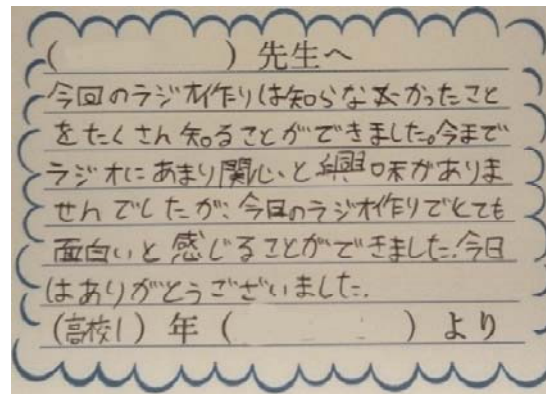 ( ) 先生へ
今回のラジオ作りは知らなかったこと
をたくさん知ることができました。今まで
ラジオにあまり関心と興味がありま
せんでしたが、今日のラジオ作りでとても
面白いと感じることができました。今日
はありがとうございました.
(高校1) 年 ( ) より